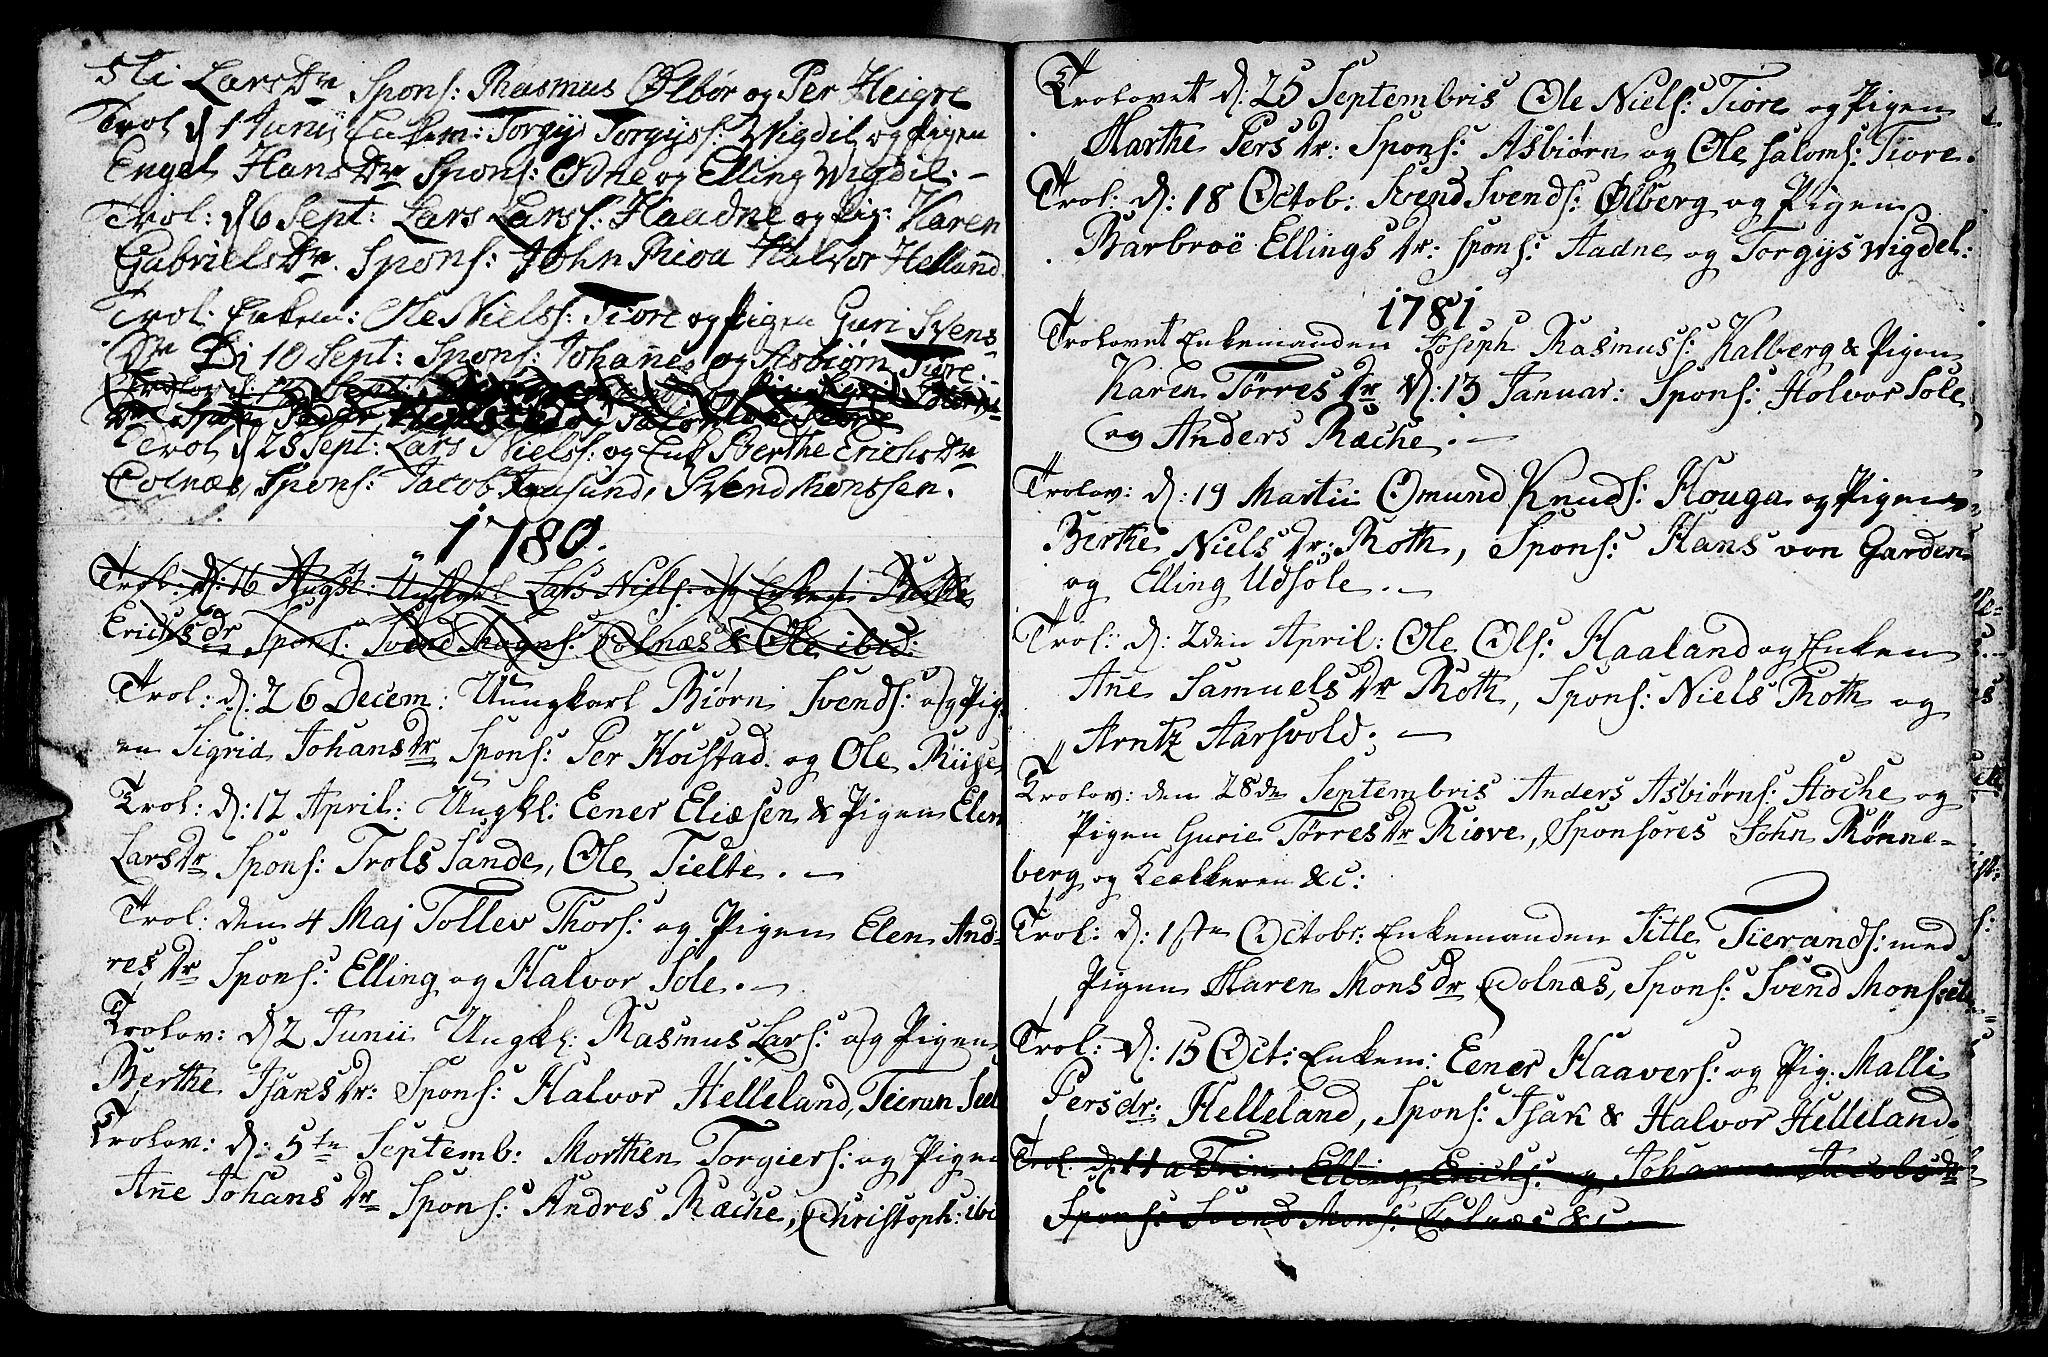 Sti LarsDr Spons: Rasmus Ølbør og Per Heigre
Trol d 1 Junij Enkem: Torgÿs Torgÿss: Wigdil og Pigen
Engel HansDr Spons: Odne og Elling Wigdil. -
Trol: d 6 Sept: Lars Larss: Haadne og Pig: Karen
GabrielsDr. Spons: John Riva Halvor Helland
Trol. Enkem: Ole Nielss: Tiore og Pigen Guri Svens
Dr Di 10 Sept: Spons: Johañes og Asbiørn Tiore.-
Trolov d.
Dr Spons Peder og Salomon Tiore
Trol d 28 Sept: Lars Nielss: og Enk Berthe ErichsDr
Colnæs, Spons: Jacob Svend Monssen.
1780.
Trol: d: 16 Augst: Ungkarl Lars Niels: og Enken Berthe
Erichsdr Spons: Svend Mogns: Colnæs & Ole ibid:
Trol: d: 26 Decem: Uungkarl Biørn Svends: og Pig-
en Sigrid Johansdr Spons: Per Hoistad. og Ole Riise
Trol: d: 12 April: Ungkl: Eener Eliæsen & Pigen Elen
LarsDr Spons: Trols Sande, Ole Tielte. -
Trol: den 4 Maj Tollev Thors: og Pigen Elen And-
resDr Spons: Elling og Halvor Sole. -
Trolov: d 2 Junii Ungkl: Rasmus Lars: og Pigen
Berthe IsaksDr: Spons: Halvor Helleland, Tieran Seel
Trolov: d: 5te Septemb: Morthen Torgiers: og Pigen
Añe JohansDr Spons: Andres Ræche, Christoph: ibi
Trolovet d: 25 Septembris Ole Niels: Tiore og Pigen
Marthe PersDr: Spons: Asbiørn og Ole Saloms: Tiore.
Trol: d: 18 Octob: Svend Svends: Ølberg og Pigen
Barbroe EllingsDr: spons: Aadne og Torgÿs Wigdel:
1781
Trolovet Enkemanden Joseph Rasmuss: Kalberg & Pigen
Karen TørresDr d: 13 Januar: Spons: Holvor Sole
og Anders Ræche. -
Trolov: d: 19 Martii Omund Knuds: Houga og Pigen
Berthe NielsDr: Roth, Spons: Hans von Garden
og Elling Udsole. -
Trol: d: 2den April: Ole Ols: Haaland og Enken
Añe SamuelsDr Roth, Spons: Niels Roth og
Arntz Aarsvold. -
Trolov: den 28de Septembris Anders Asbiørns: Stoche og
Pigen Gurie TørresDr Riove, Sponsores John Rønne-
berg og Keelkeren &c:
Trol: d: 1ste Octobr: Enkemanden Sitle Tierands: med
Pigen Maren Monsdr Colnæs, Spons: Svend Monssen
Trol: d: 15 Oct: Enkem: Eener Haavers: og Pig: Malli
Persdr: Helleland, Spons: Isak & Halvor Helleland.
Trol. Elling Erichs: og Johanna Jacobsdr
Spons: Svend Mons: Colnæs &c